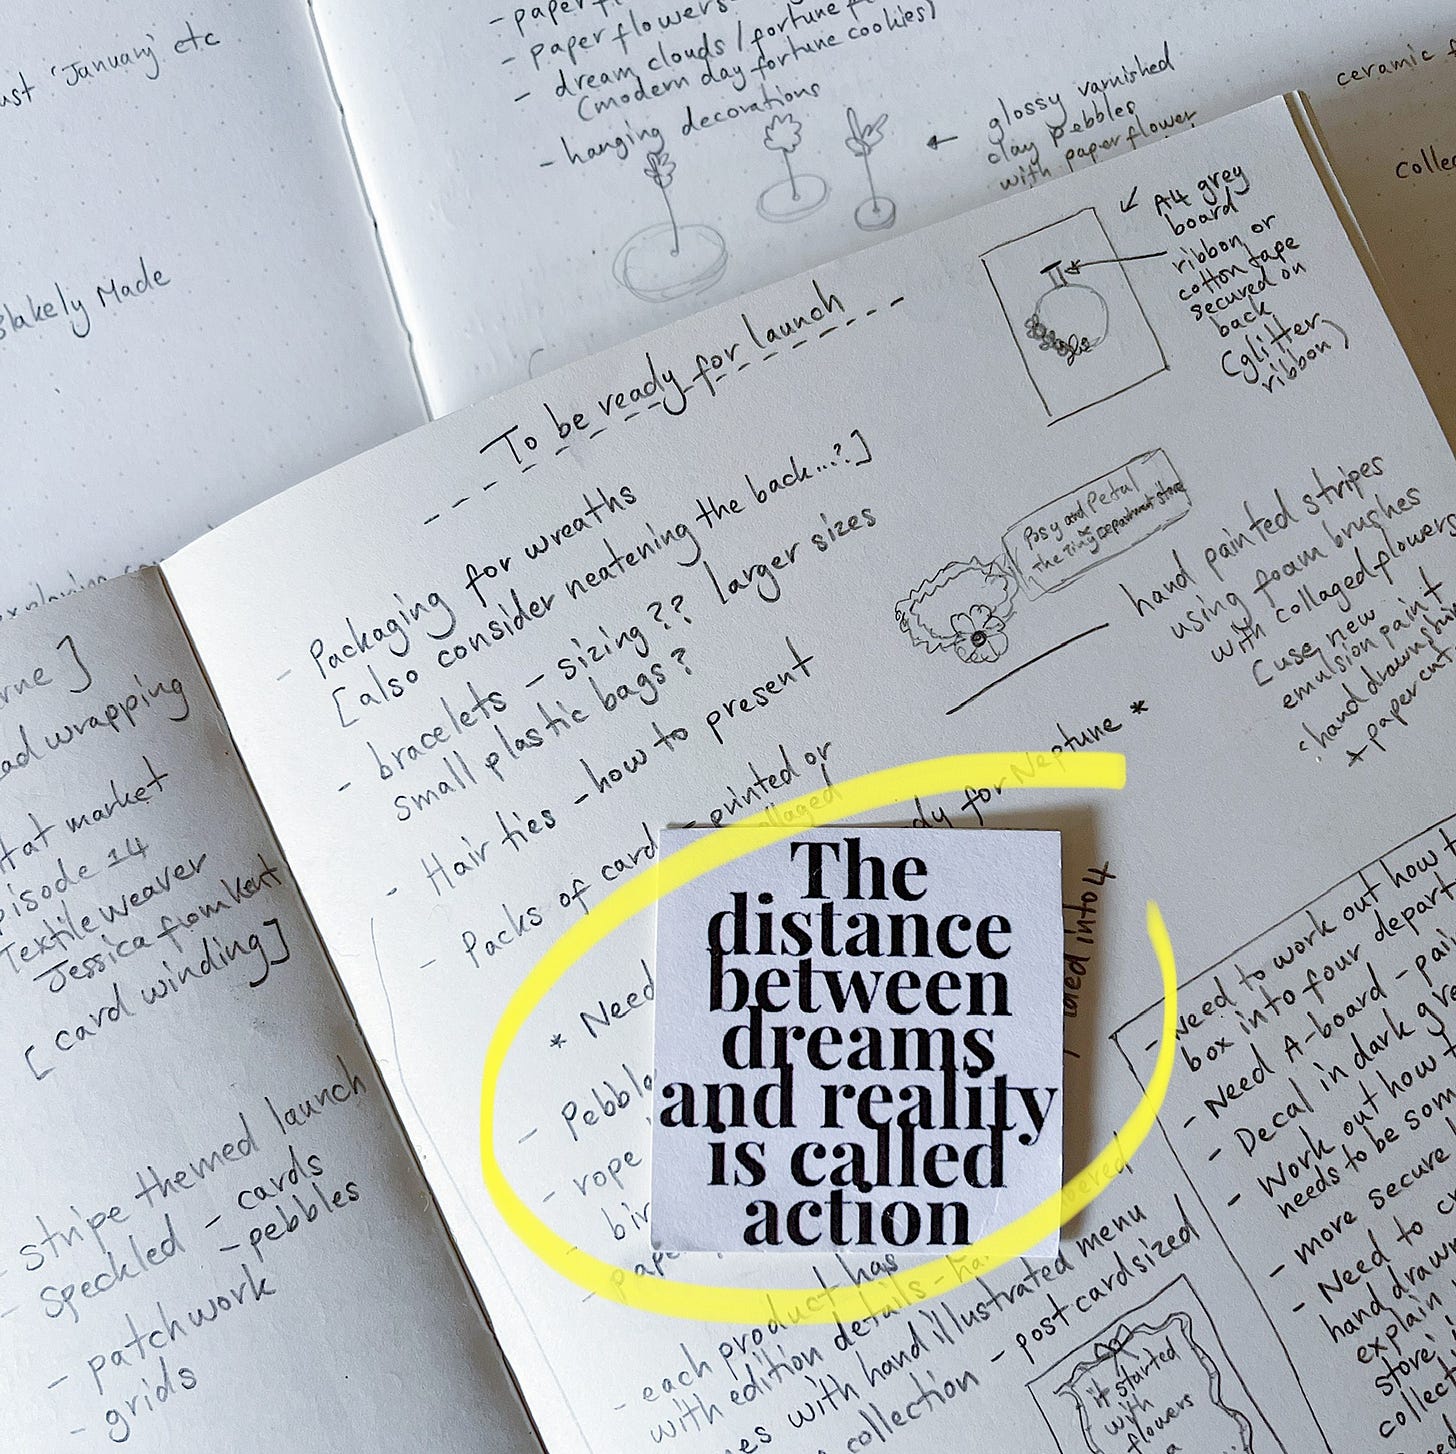 ust 'January' etc
Blakely Made
- paper
- paper flowers
- dream clouds / fortune
(modern day fortune cookies)
- hanging decorations
← glossy varnished
clay pebbles
with paper flower
ceramic
colle
A4 grey
board
ribbon or
cotton tape
secured on
back
(glitter
ribbon)
To be ready for launch
- Packaging for wreaths
[also consider neatening the back...?]
- bracelets - sizing?? larger sizes
small plastic bags?
- Hair ties - how to present
- Packs of card - printed or
collaged
Posy and Petal
the Tiny Department Store
hand painted stripes
using foam brushes
with collaged flowers
[use new
emulsion paint
hand drawn
+ paper cut
dy for Neptune *
* Need
into 4
- Pebble
- rope
bir
- pape
- each product has
with edition details - ha
bered
es with hand illustrated menu
collection - postcard sized
The
distance
between
dreams
and reality
is called
action
- Need to work out how t
box into four depart
- Need A-board - pai
- Decal in dark gr
- Work out how t
needs to be som
- more secure
- Need to c
hand draw
explain
store i
collect
"it started
with
flowers
rne]
ad wrapping
tat market
pisode 14
Textile Weaver
Jessica from Kent
[card winding]
- stripe themed launch
- speckled - cards
- pebbles
- patchwork
- grids